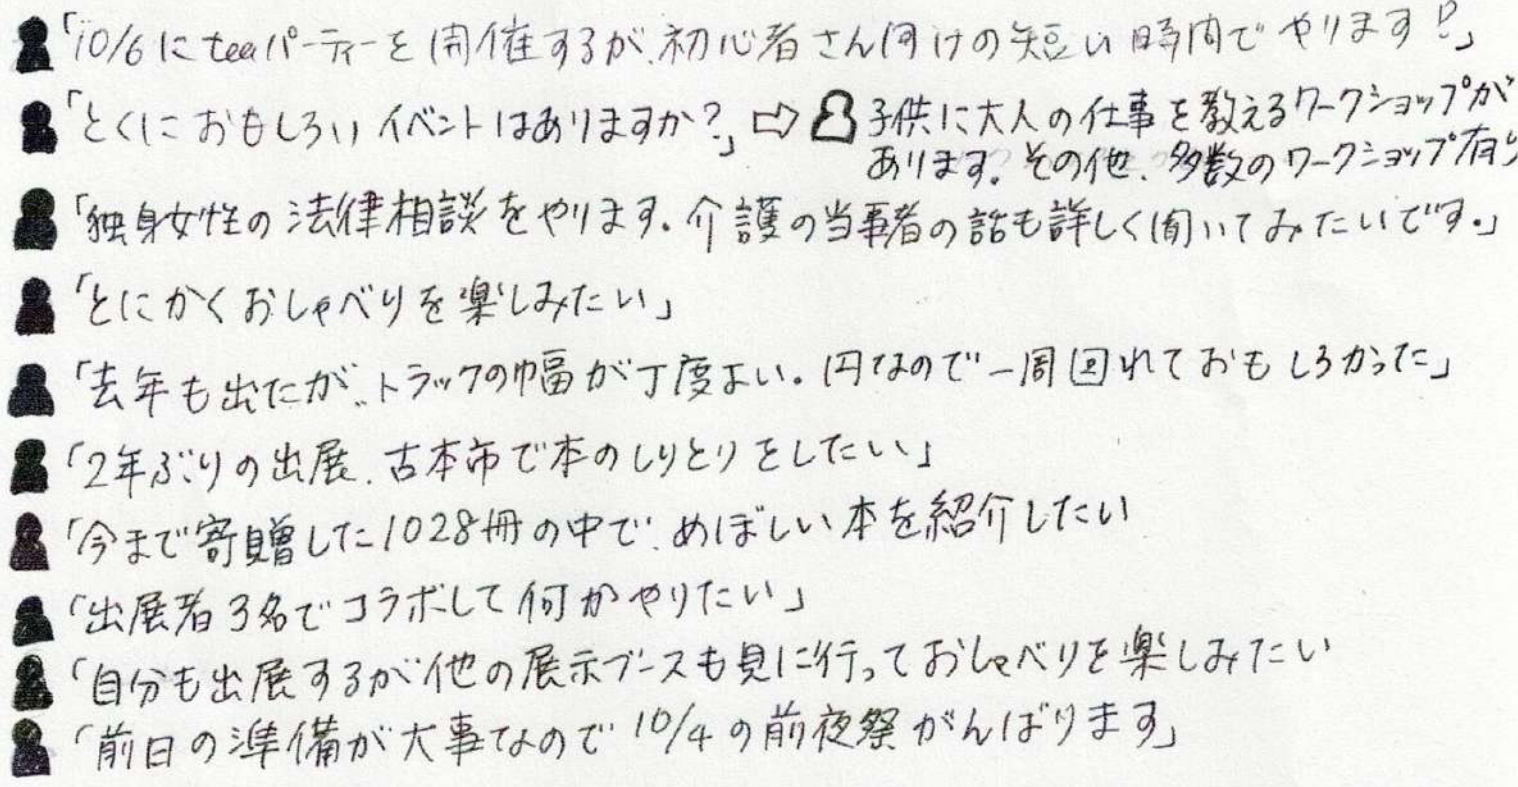 「10/6にteaパーティーを開催するが、初心者さん向けの短い時間でやります!」
「とくにおもしろいイベントはありますか?」⇨子供に大人の仕事を教えるワークショップが
あります。その他、多数のワークショップ有り
「独身女性の法律相談をやります。介護の当事者の話も詳しく聞いてみたいです。」
「とにかくおしゃべりを楽しみたい」
「去年も出たが、トラックの幅が丁度よい。円なので一周回れておもしろかった」
「2年ぶりの出展、古本市で本のしりとりをしたい」
「今まで寄贈した1028冊の中で、めぼしい本を紹介したい
「出展者3名でコラボして何かやりたい」
「自分も出展するが他の展示ブースも見に行っておしゃべりを楽しみたい
「前日の準備が大事なので10/4の前夜祭がんばります」